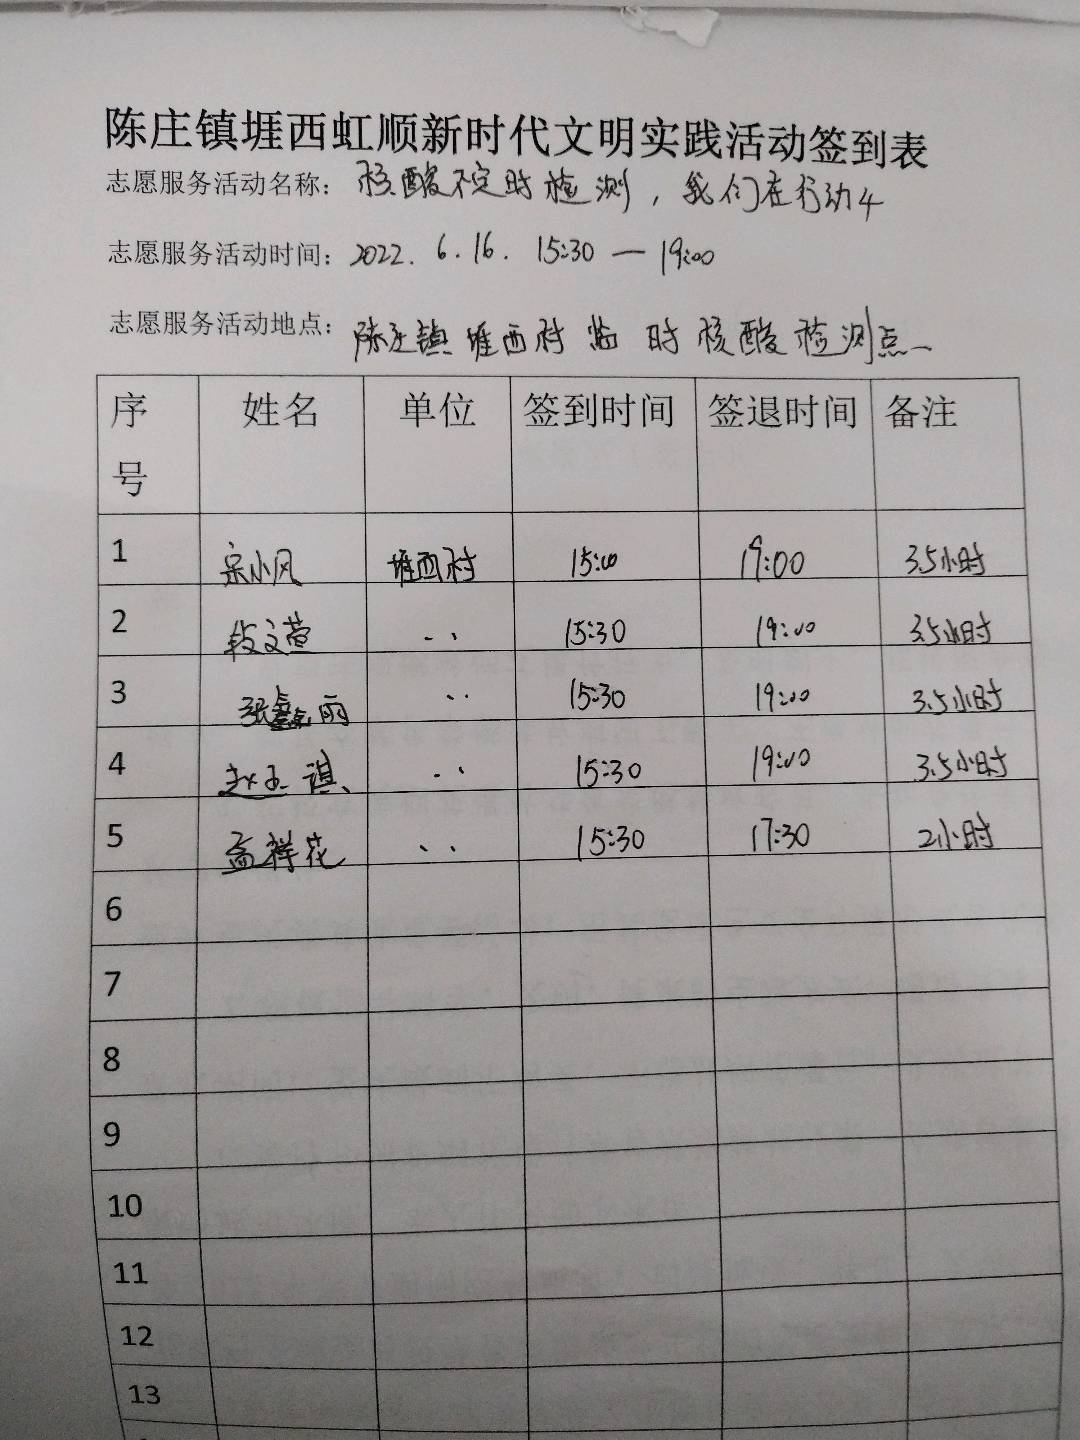 陈庄镇堐西虹顺新时代文明实践活动签到表
志愿服务活动名称：核酸不定时检测，我们在行动4
志愿服务活动时间：2022.6.16. 15:30—19:00
志愿服务活动地点：陈庄镇堐西村临时核酸检测点
序号 姓名 单位 签到时间 签退时间 备注
1 宋小风 堐西村 15:00 19:00 3.5小时
2 段文萱 〃 15:30 19:00 3.5小时
3 张鑫丽 〃 15:30 19:00 3.5小时
4 赵玉祺 〃 15:30 19:00 3.5小时
5 孟祥花 〃 15:30 17:30 2小时
6
7
8
9
10
11
12
13